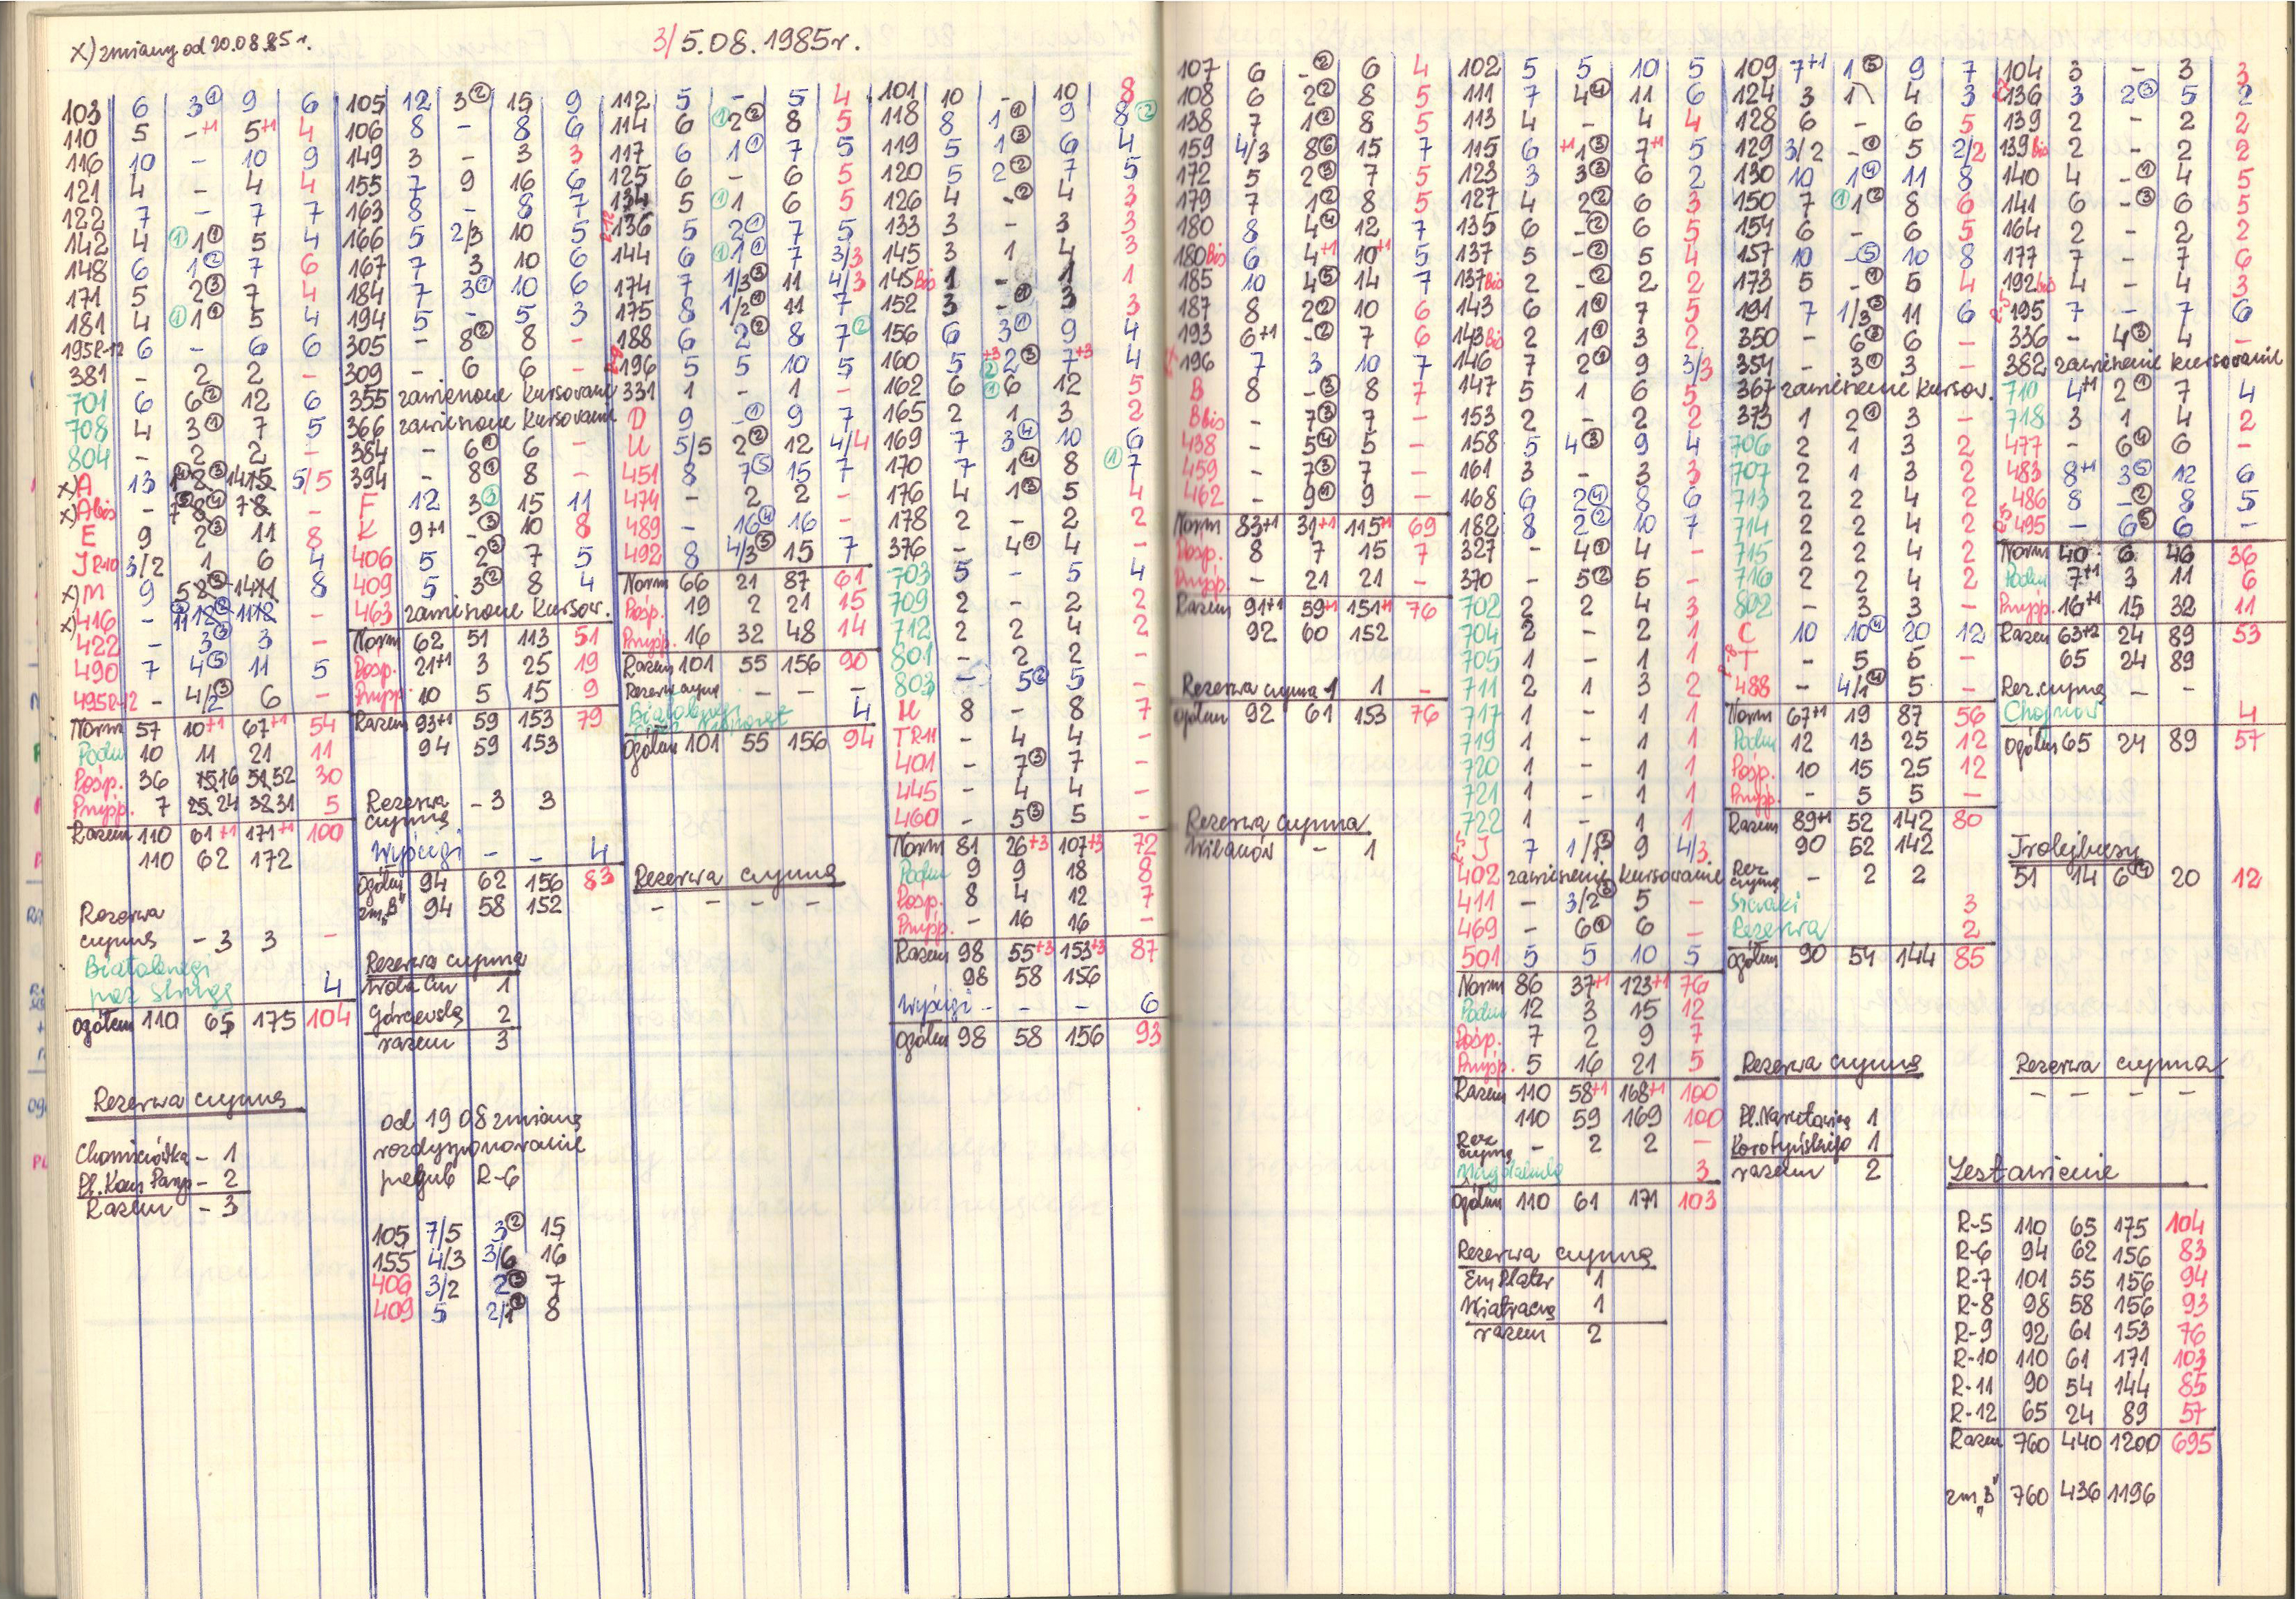 x) zmiany od 20.08.85 r.
3/ 5.08.1985 r.
103 6 3① 9 6
110 5 -+1 5+1 4
116 10 - 10 9
121 4 - 4 4
122 7 - 7 7
142 4 ①1① 5 4
148 6 1② 7 6
171 5 2③ 7 4
181 4 ①1① 5 4
195R-12 6 - 6 6
381 - 2 2 -
701 6 6② 12 6
708 4 3① 7 5
804 - 2 2 -
x) A 13 5/5
x) A bis -
E 9 2③ 11 8
J R-10 3/2 1 6 4
x) M 9 8
x) 416 - -
422 - 3③ 3 -
490 7 4⑤ 11 5
495R-12 - 4/2③ 6 -
Norm 57 10+1 67+1 54
Podm 10 11 21 11
Pośp. 36 15 16 51 52 30
Przysp. 7 25 24 32 31 5
Razem 110 61+1 171+1 100
110 62 172
Rezerwa
czynna - 3 3 -
Białobrzegi
4
Ogółem 110 65 175 104
Rezerwa czynna
Chomiczówka - 1
Pl. Kom Parys - 2
Razem - 3
105 12 3② 15 9
106 8 - 8 6
149 3 - 3 3
155 7 9 16 6
163 8 - 8 7
166 5 2/3 10 5
167 7 3 10 6
184 7 3① 10 6
194 5 - 5 3
305 - 8② 8 -
309 - 6 6 -
355 zawieszone kursowanie
366 zawieszone kursowanie
384 - 6① 6 -
394 - 8① 8 -
F 12 3③ 15 11
K 9+1 -③ 10 8
406 5 2③ 7 5
409 5 3② 8 4
463 zawieszone kursow.
Norm 62 51 113 51
Pośp. 21+1 3 25 19
Przysp. 10 5 15 9
Razem 93+1 59 153 79
94 59 153
Rezerwa
czynna - 3 3
Wyścigi - - 4
Ogółem 94 62 156 83
zm „B” 94 58 152
Rezerwa czynna
1
Górczewska 2
razem 3
od 19 08 zmiana
rozdysponowanie
przegub R-6
105 7/5 3② 15
155 4/3 3/6 16
406 3/2 2③ 7
409 5 2/1② 8
112 5 - 5 4
114 6 ①2② 8 5
117 6 1① 7 5
125 6 - 6 5
134 5 ①1 6 5
R-12 136 5 2① 7 5
144 6 ①1① 7 3/3
174 7 1/3③ 11 4/3
175 8 1/2① 11 7
188 6 2② 8 7②
R-9 196 5 5 10 5
331 1 - 1 -
D 9 -① 9 7
U 5/5 2② 12 4/4
451 8 7⑤ 15 7
474 - 2 2 -
489 - 16④ 16 -
492 8 4/3⑤ 15 7
Norm 66 21 87 61
Pośp. 19 2 21 15
Przysp. 16 32 48 14
Razem 101 55 156 90
Rezerwa czynna - - -
Białobrzegi
4
Ogółem 101 55 156 94
Rezerwa czynna
- - - -
101 10 - 10 8
118 8 1① 9 8②
119 5 1③ 6 4
120 5 2② 7 5
126 4 -② 4 3
133 3 - 3 3
145 3 1 4 3
145 Bis 1 - 1 1
152 3 -① 3 3
156 6 3① 9 4
160 5 +3②2③ 7+3 4
162 6 ①6 12 5
165 2 1 3 2
169 7 3④ 10 6
170 7 1④ 8 ①7
176 4 1③ 5 4
178 2 - 2 2
376 - 4① 4 -
703 5 - 5 4
709 2 - 2 2
712 2 2 4 2
801 - 2 2 -
803 - 5② 5 -
U 8 - 8 7
T R-11 - 4 4 -
401 - 7③ 7 -
445 - 4 4 -
460 - 5③ 5 -
Norm 81 26+3 107+3 72
Podm 9 9 18 8
Pośp. 8 4 12 7
Przysp. - 16 16 -
Razem 98 55+3 153+3 87
98 58 156
Wyścigi - - - 6
Ogółem 98 58 156 93
107 6 -② 6 4
108 6 2② 8 5
138 7 1② 8 5
159 4/3 8⑥ 15 7
172 5 2③ 7 5
179 7 1② 8 5
180 8 4④ 12 7
180 Bis 6 4+1 10+1 5
185 10 4⑤ 14 7
187 8 2② 10 6
193 6+1 -② 7 6
196 7 3 10 7
B 8 -③ 8 7
B bis - 7③ 7 -
438 - 5④ 5 -
459 - 7③ 7 -
462 - 9① 9 -
Norm 83+1 31+1 115+1 69
Pośp. 8 7 15 7
Przysp. - 21 21 -
Razem 91+1 59+1 151+1 76
92 60 152
Rezerwa czynna 1 1 -
Ogółem 92 61 153 76
Rezerwa czynna
Wilanów - 1
102 5 5 10 5
111 7 4④ 11 6
113 4 - 4 4
115 6 +1 1③ 7+1 5
123 3 3③ 6 2
127 4 2② 6 3
135 6 -② 6 5
137 5 -② 5 4
137 bis 2 -② 2 2
143 6 1① 7 5
143 Bis 2 1① 3 2
146 7 2① 9 3/3
147 5 1 6 5
153 2 - 2 2
158 5 4③ 9 4
161 3 - 3 3
168 6 2④ 8 6
182 8 2② 10 7
327 - 4① 4 -
370 - 5② 5 -
702 2 2 4 3
704 2 - 2 1
705 1 - 1 1
711 2 1 3 2
717 1 - 1 1
719 1 - 1 1
720 1 - 1 1
721 1 - 1 1
722 1 - 1 1
R-5 J 7 1/1② 9 4/3
402 zawieszenie kursowanie
411 - 3/2③ 5 -
469 - 6① 6 -
501 5 5 10 5
Norm 86 37+1 123+1 76
Podm 12 3 15 12
Pośp. 7 2 9 7
Przysp. 5 16 21 5
Razem 110 58+1 168+1 100
110 59 169 100
Rez
czynna - 2 2 -
3
Ogółem 110 61 171 103
Rezerwa czynna
Em Plater 1
Wiatraczna 1
razem 2
109 7+1 1⑤ 9 7
124 3 1 4 3
128 6 - 6 5
129 3/2 -① 5 2/2
130 10 1④ 11 8
150 7 ①1② 8 6
154 6 - 6 5
157 10 -⑤ 10 8
173 5 -① 5 4
191 7 1/3③ 11 6
350 - 6③ 6 -
354 - 3① 3 -
367 zawieszenie kursow.
373 1 2① 3 -
706 2 1 3 2
707 2 1 3 2
713 2 2 4 2
714 2 2 4 2
715 2 2 4 2
716 2 2 4 2
802 - 3 3 -
C 10 10④ 20 12
R-8 T - 5 5 -
488 - 4/1④ 5 -
Norm 67+1 19 87 56
Podm 12 13 25 12
Pośp. 10 15 25 12
Przysp. - 5 5 -
Razem 89+1 52 142 80
90 52 142
Rez
czynna - 2 2
3
Rezerwa 2
Ogółem 90 54 144 85
Rezerwa czynna
Pl. Narutowicza 1
Korotyńskiego 1
razem 2
104 3 - 3 3
136 3 2③ 5 2
139 2 - 2 2
139 bis 2 - 2 2
140 4 -① 4 5
141 6 -③ 6 5
164 2 - 2 2
177 7 - 7 6
192 bis 4 - 4 3
R-5 195 7 - 7 6
336 - 4③ 4 -
382 zawieszenie kursowanie
710 4+1 2① 7 4
718 3 1 4 2
477 - 6④ 6 -
483 8+1 3⑤ 12 6
486 8 -② 8 5
R-5 495 - 6⑤ 6 -
Norm 40 6 46 36
Podm 7+1 3 11 6
Przysp. 16+1 15 32 11
Razem 63+2 24 89 53
65 24 89
Rez. czynna - -
Chojnów 4
Ogółem 65 24 89 57
Trolejbusy
51 14 6④ 20 12
Rezerwa czynna
- - - -
Zestawienie
R-5 110 65 175 104
R-6 94 62 156 83
R-7 101 55 156 94
R-8 98 58 156 93
R-9 92 61 153 76
R-10 110 61 171 103
R-11 90 54 144 85
R-12 65 24 89 57
Razem 760 440 1200 695
zm „B” 760 436 1196